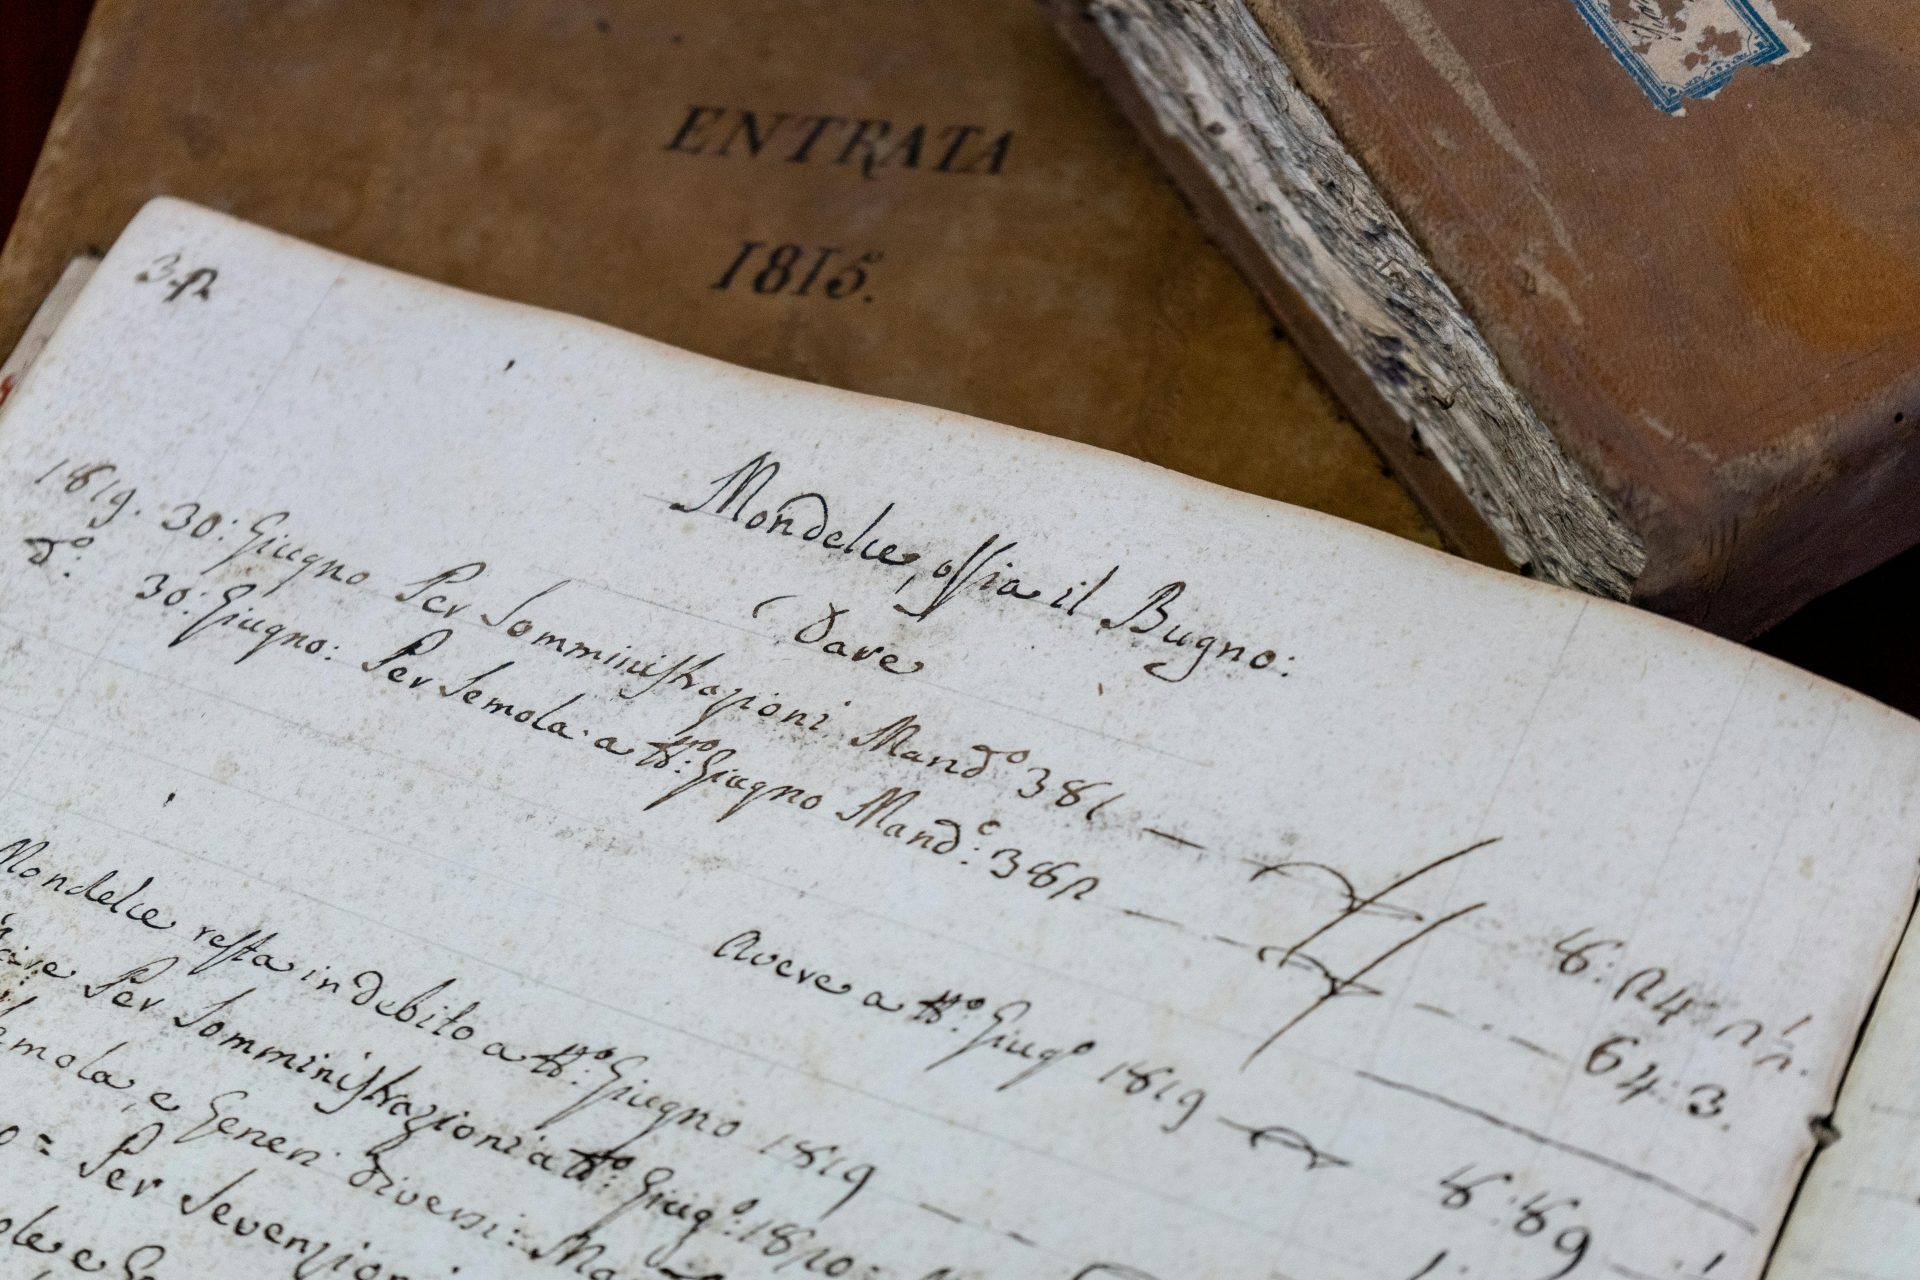 ENTRATA
1815.
32
Mondelce, ossia il Bugno:
Dare
1819. 30: Giugno Per Somministrazioni Mand.º 381
d.º: 30: Giugno: Per Semola a tt.º: Giugno Mand.º: 382
8: 24: 2
64: 3.
Avere a tt.º: Giug.º 1819
8: 89
Mondelce resta in debito a tt.º: Giugno 1819
Per Somministrazioni a tt.º: Giug.º: 1820:
e Generi diversi:
= Per Sevenzion
e